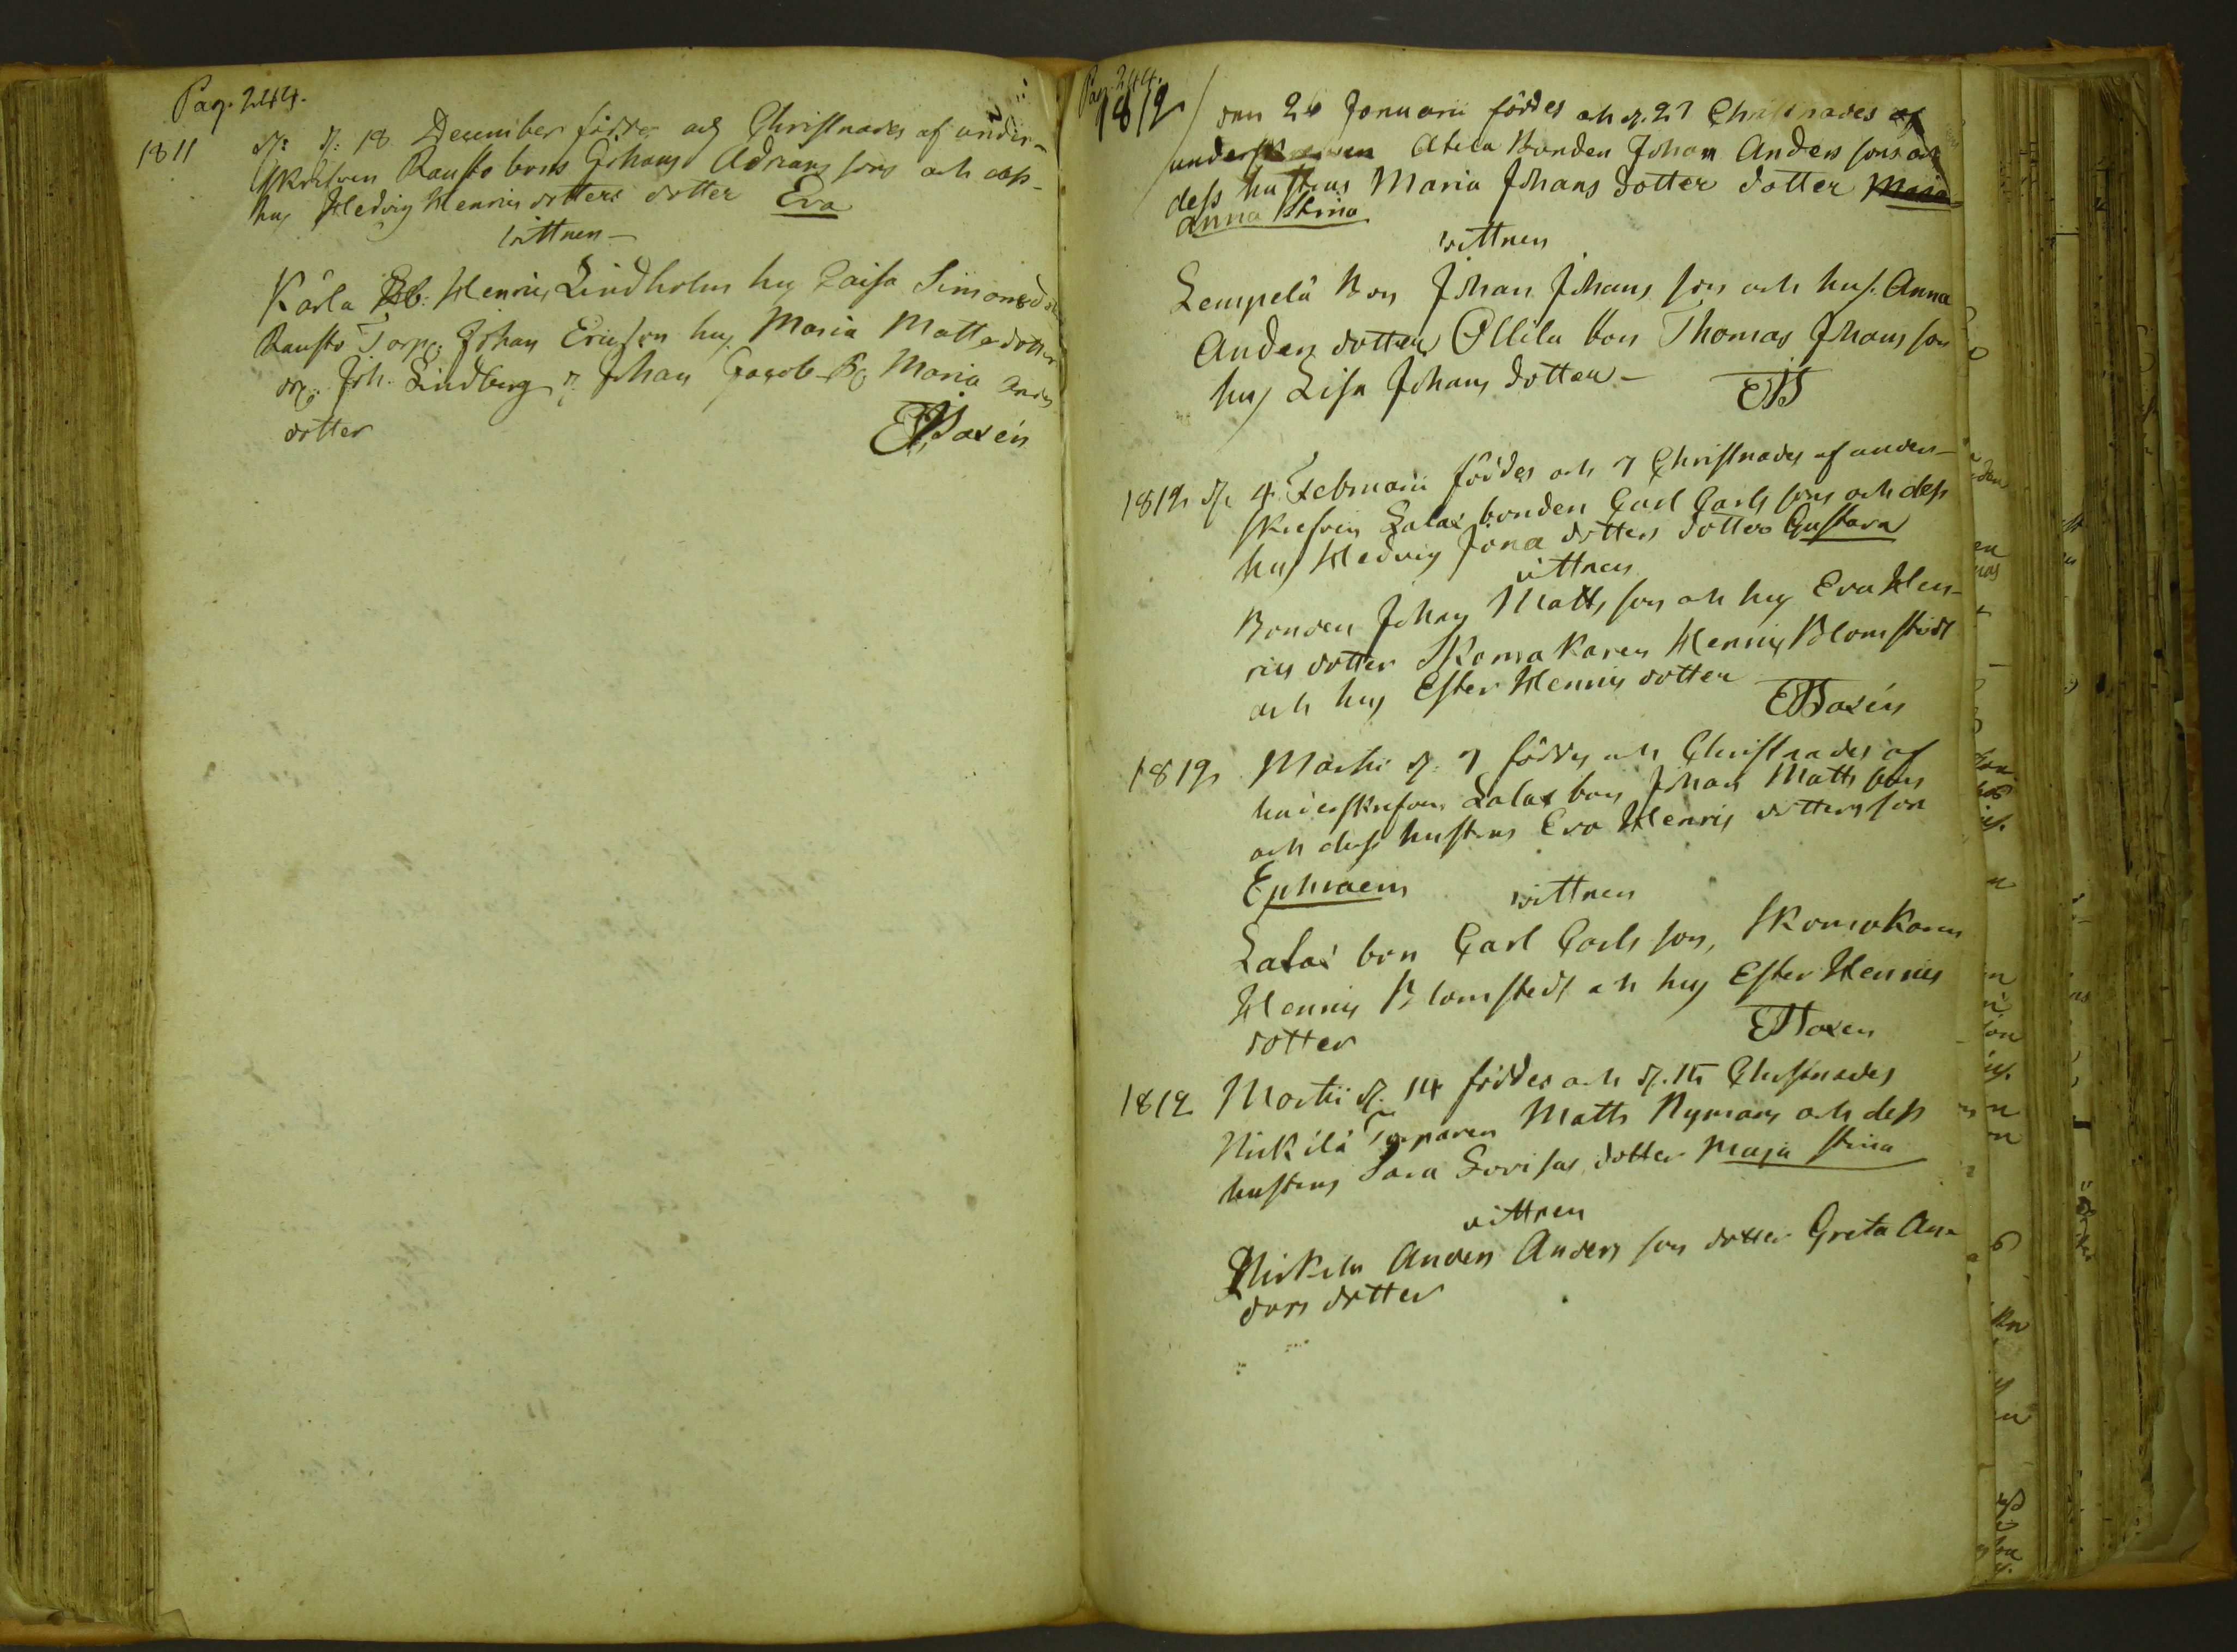 Pag. 244.
1811 d: 18 December föddes och Christnades af under-
skrifven Rausto bons Johans Adrians sons och dess
hus Hedvig Henricsdotters dotter Eva
vittnen
Karla Henric Lindholm hus Caisa Simonsd
Rausto Torp: Johan Ericsson hus Maria Mattsdotter
Joh. Lindberg Johan Jacob Maria Anders
dotter
Pag. 244.
1812 den 26 Januarii föddes och d. 27 Christnades af
underskrifven Bonden Johan Anders sons och
dess hustrus Maria Johans dotter dotter Maria
Anna Stina
vittnen
Lempelä Bon Johan Johans son och hus. Anna
Anders dotter Ollila bon Thomas Johans son
hus Lisa Johans dotter
1812 d. 4 Februarii föddes och 7 Christnades af under-
skrefven Lalax bonden Carl Carls sons och dess
hus Hedvig Jona dotters dotter Gustava
vittnen
Bonden Johan Matts son och hus Eva Hen-
rics dotter Skomakaren Henric Blomstedt
och hus Ester Henrics dotter
1812 Martii d. 7 föddes och Christnades af
underskrefven Lalax bons Johan Matts sons
och dess hustrus Eva Henrics dotters son
Ephraem
vittnen
Lalax bon Carl Carls son, Skomakaren
Henric Blomstedt och hus Ester Henrics
dotter
1812 Martii d. 14 föddes och d. 15 Christnades
Nickilä Torparen Matts Nymans och dess
hustrus Sara Lovisas dotter Maja Stina
vittnen
Anders Anders son dotter Greta An-
ders dotter